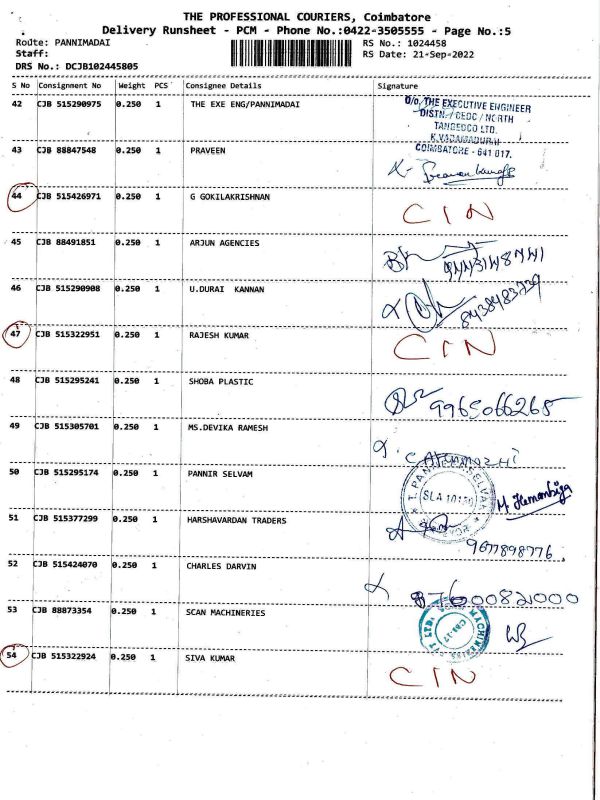 THE PROFESSIONAL COURIERS, Coimbatore
Delivery Runsheet - PCM - Phone No.:0422-3505555 - Page No.:5
Route: PANNIMADAI RS No.: 1024458
Staff: RS Date: 21-Sep-2022
DRS No.: DCJB102445805
S No Consignment No Weight PCS Consignee Details Signature
42 CJB 515290975 0.250 1 THE EXE ENG/PANNIMADAI
O/o. THE EXECUTIVE ENGINEER
DISTN. / CEDC / NORTH
TANGEDCO LTD.
K.VADAMADURAI
COIMBATORE - 641 017.
43 CJB 88847548 0.250 1 PRAVEEN
44 CJB 515426971 0.250 1 G GOKILAKRISHNAN CIN
45 CJB 88491851 0.250 1 ARJUN AGENCIES
46 CJB 515290908 0.250 1 U.DURAI KANNAN 8438483739
47 CJB 515322951 0.250 1 RAJESH KUMAR CIN
48 CJB 515295241 0.250 1 SHOBA PLASTIC 9965066265
49 CJB 515305701 0.250 1 MS.DEVIKA RAMESH
50 CJB 515295174 0.250 1 PANNIR SELVAM
51 CJB 515377299 0.250 1 HARSHAVARDAN TRADERS 9677898776
52 CJB 515424070 0.250 1 CHARLES DARVIN
53 CJB 88873354 0.250 1 SCAN MACHINERIES
54 CJB 515322924 0.250 1 SIVA KUMAR CIN